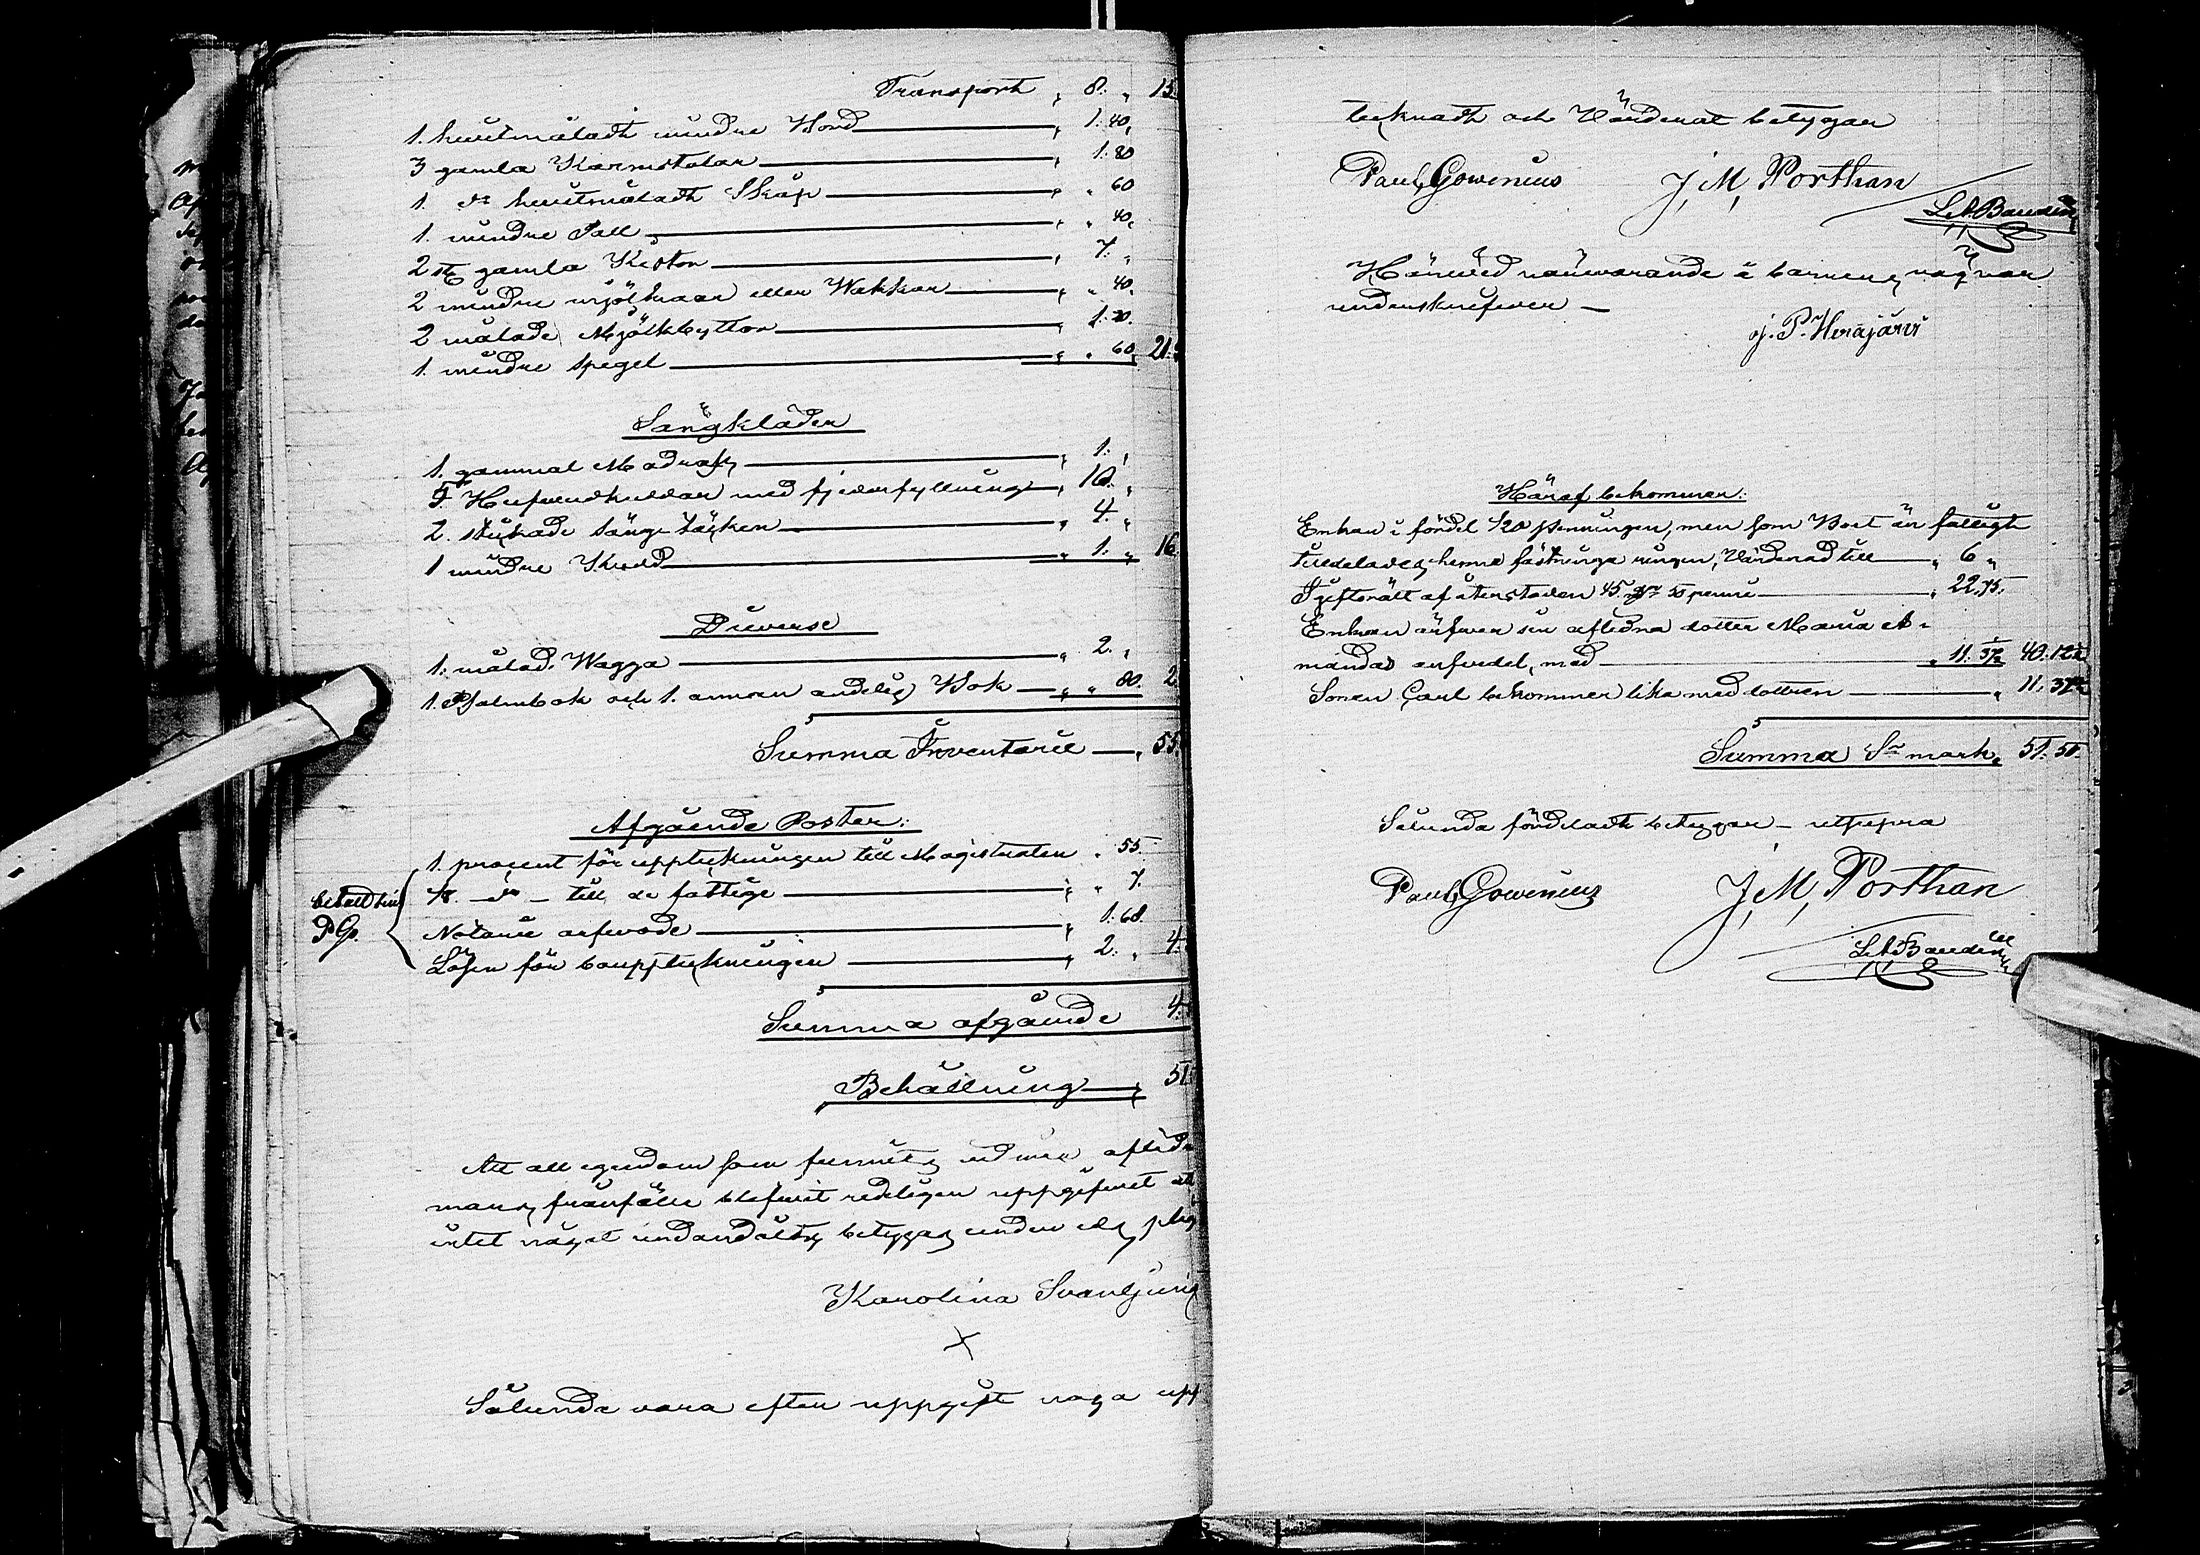 Transport " 8. " 15.
1. hvitmåladt mindre Bord " 1. 40.
3 gamla Karmstolar " 1. 80
1. d:o hvitmåladt Skåp " " 60
1. mindre Pall " " 40.
2 st. gamla Kistor " 7. "
2 mindre mjölkkaar eller Wakkor " " 40.
2 målade Mjölkbyttor " 1. 20.
1. mindre spegel " " 60. 21.
Sängkläder
1. gammal Madrass " 1. "
5. Hufvudkuddar med fjederfyllning " 10. "
2. stickade sängtäcken " 4. "
1 mindre Kudd " 1. " 16.
Diverse
1. målad Wagga " 2. "
1. Psalmbok och 1. annan andelig Bok " " 80. 2.
Summa Inventarie " 55.
Afgående Poster:
1. procent för uppteckningen till Magistraten " 55.
1/8 d:o till de fattige " " 7.
betald
PG.
Notarie arfvode " 1. 68.
Lösen för bouppteckningen " 2. " 4.
Summa afgående 4.
Behållning " 51.
Att all egendom som funnits vid min aflidn
mans frånfälle blifvit redeligen uppgifvet att
intet något undandöldts betygas under eds pligt
Karolina Svanljung
X
Sålunda vara efter uppgift noga upp
tecknadt och Värderat betygar
Paul Gowenius J. M. Porthan
L A Bandin
Härvid närvarande å barnens vägnar
underskrifver —
J. P. Herajärvi
Häraf bekommer:
Enkan i fördel 1/20 penningen, men som Boet är fattigt
tilldelades henne fästninga ringen, Värderad till " 6 "
I giftorätt af återstoden 45 mk 50 penni " 22. 75.
Enkan ärfver sin aflidna dotter Maria A-
mandas arfvedel, med " 11. 37 1/2 40. 12 1/2
Sonen Carl bekommer lika med dottren " 11. 37 1/2
Summa S:a mark 51. 50.
Sålunda fördeladt betygar — ut supra
Paul Gowenius J. M. Porthan
L A Bandin